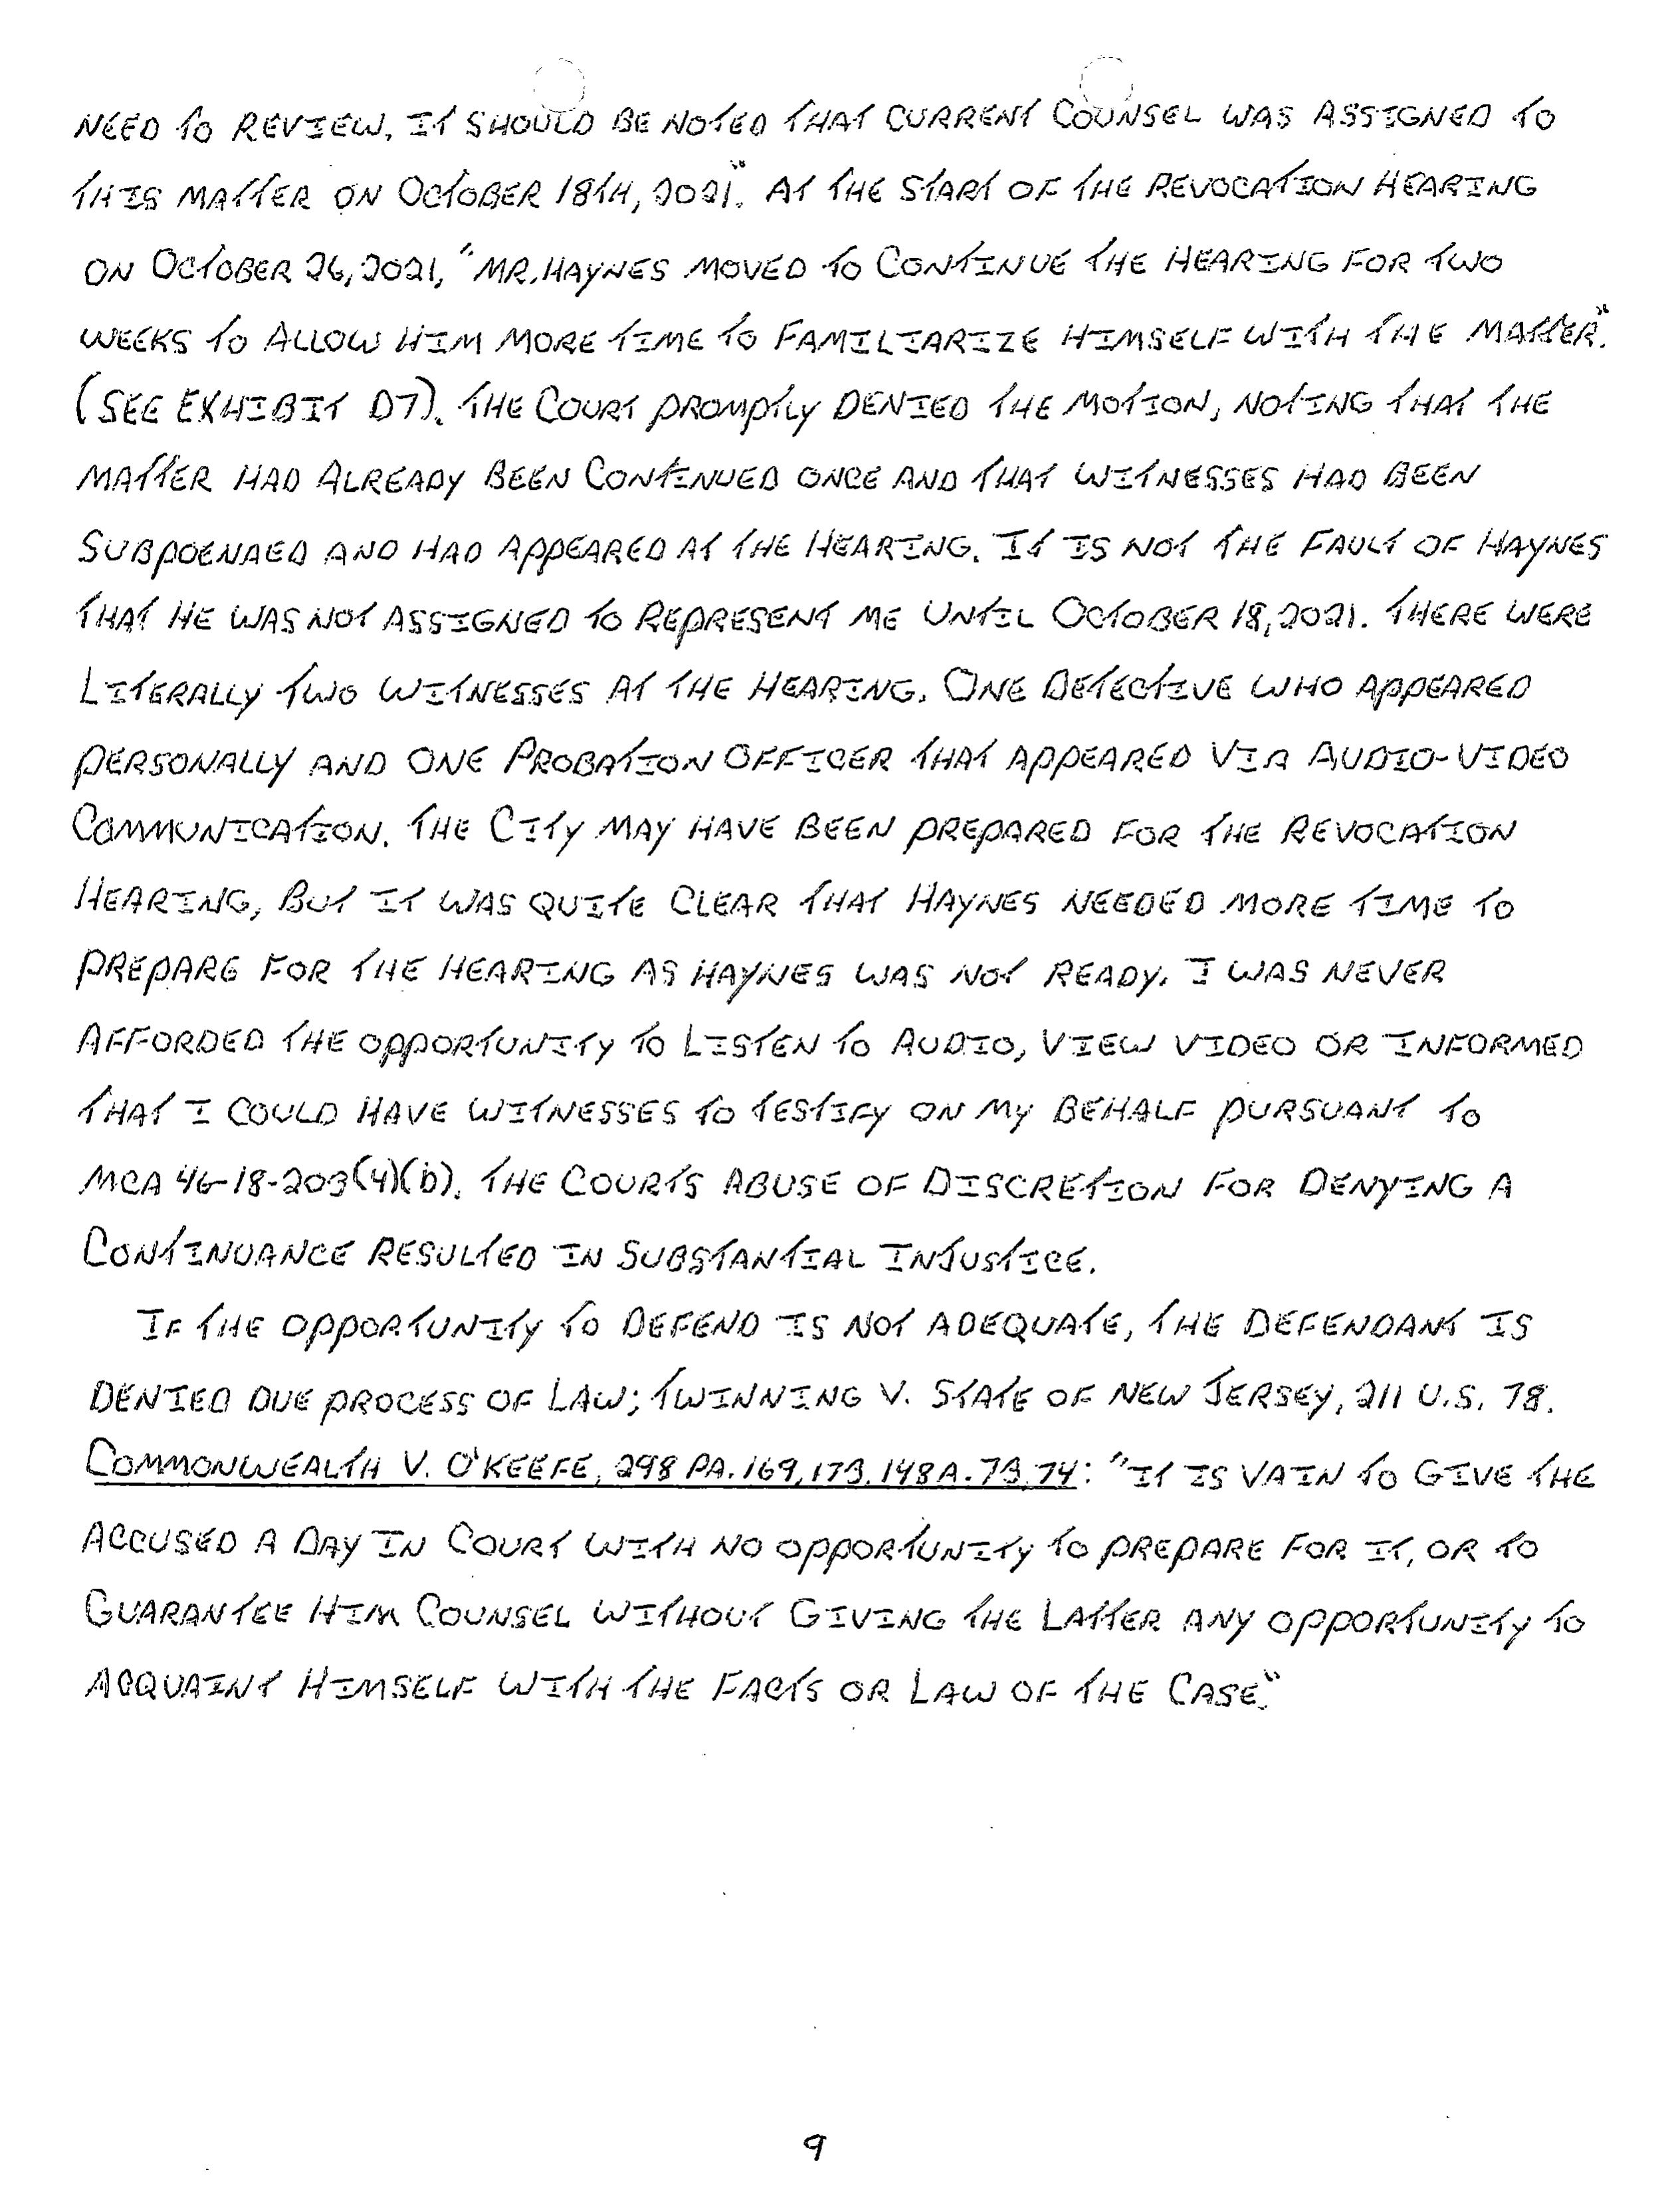 NEED TO REVIEW. IT SHOULD BE NOTED THAT CURRENT COUNSEL WAS ASSIGNED TO
THIS MATTER ON OCTOBER 18TH, 2021". AT THE START OF THE REVOCATION HEARING
ON OCTOBER 26, 2021, "MR. HAYNES MOVED TO CONTINUE THE HEARING FOR TWO
WEEKS TO ALLOW HIM MORE TIME TO FAMILIARIZE HIMSELF WITH THE MATTER".
(SEE EXHIBIT D7). THE COURT PROMPTLY DENIED THE MOTION, NOTING THAT THE
MATTER HAD ALREADY BEEN CONTINUED ONCE AND THAT WITNESSES HAD BEEN
SUBPOENAED AND HAD APPEARED AT THE HEARING. IT IS NOT THE FAULT OF HAYNES
THAT HE WAS NOT ASSIGNED TO REPRESENT ME UNTIL OCTOBER 18, 2021. THERE WERE
LITERALLY TWO WITNESSES AT THE HEARING. ONE DETECTIVE WHO APPEARED
PERSONALLY AND ONE PROBATION OFFICER THAT APPEARED VIA AUDIO-VIDEO
COMMUNICATION. THE CITY MAY HAVE BEEN PREPARED FOR THE REVOCATION
HEARING, BUT IT WAS QUITE CLEAR THAT HAYNES NEEDED MORE TIME TO
PREPARE FOR THE HEARING AS HAYNES WAS NOT READY. I WAS NEVER
AFFORDED THE OPPORTUNITY TO LISTEN TO AUDIO, VIEW VIDEO OR INFORMED
THAT I COULD HAVE WITNESSES TO TESTIFY ON MY BEHALF PURSUANT TO
MCA 46-18-203(4)(b). THE COURTS ABUSE OF DISCRETION FOR DENYING A
CONTINUANCE RESULTED IN SUBSTANTIAL INJUSTICE.
IF THE OPPORTUNITY TO DEFEND IS NOT ADEQUATE, THE DEFENDANT IS
DENIED DUE PROCESS OF LAW; TWINNING V. STATE OF NEW JERSEY, 211 U.S. 78.
COMMONWEALTH V. O'KEEFE, 298 PA. 169, 173. 148 A. 73, 74: "IT IS VAIN TO GIVE THE
ACCUSED A DAY IN COURT WITH NO OPPORTUNITY TO PREPARE FOR IT, OR TO
GUARANTEE HIM COUNSEL WITHOUT GIVING THE LATTER ANY OPPORTUNITY TO
ACQUAINT HIMSELF WITH THE FACTS OR LAW OF THE CASE."
9